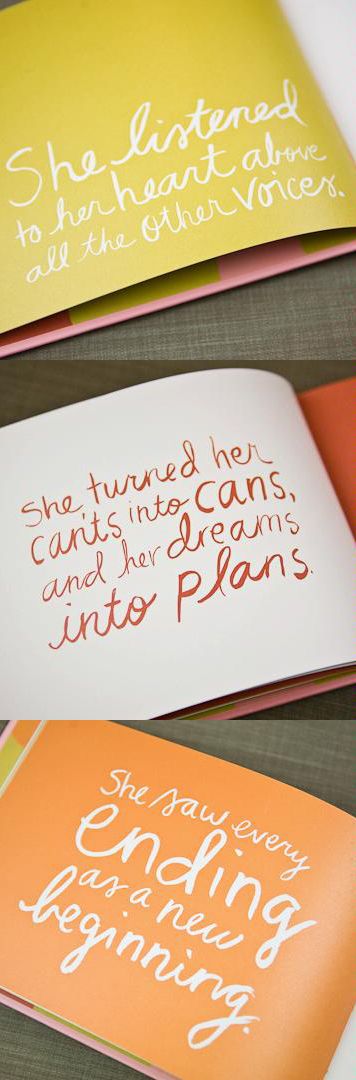 She listened
to her heart above
all the other voices.
She turned her
can'ts into cans,
and her dreams
into plans.
She saw every
ending
as a new
beginning.